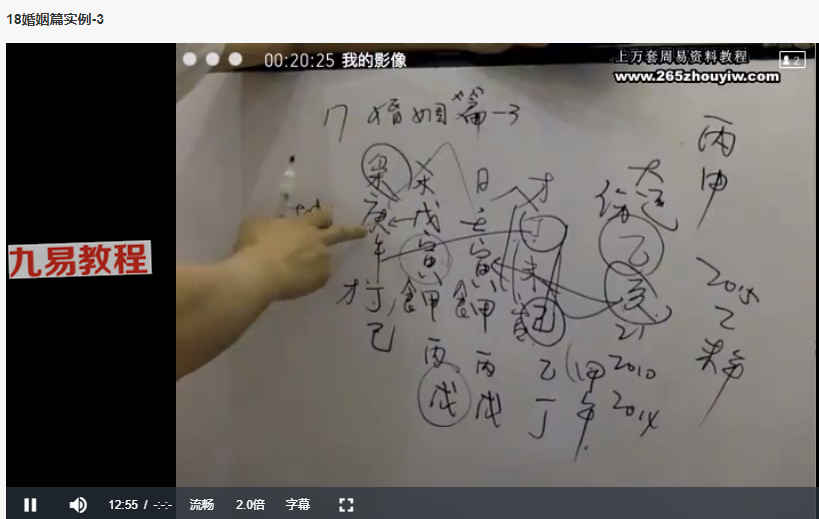 18婚姻篇实例-3
00:20:25 我的影像
上万套周易资料教程
www.265zhouyiw.com
2
九易教程
17 婚姻篇-3
枭 杀 日 才
庚 戊 壬 丁
午 寅 寅 未
才丁 食甲 食甲
己 丙 丙 乙
戊 戊 丁
大运
乙
亥
21
甲 2010
午 2014
丙
申
2015
乙
未
12:55 / -:-:-
流畅
2.0倍
字幕